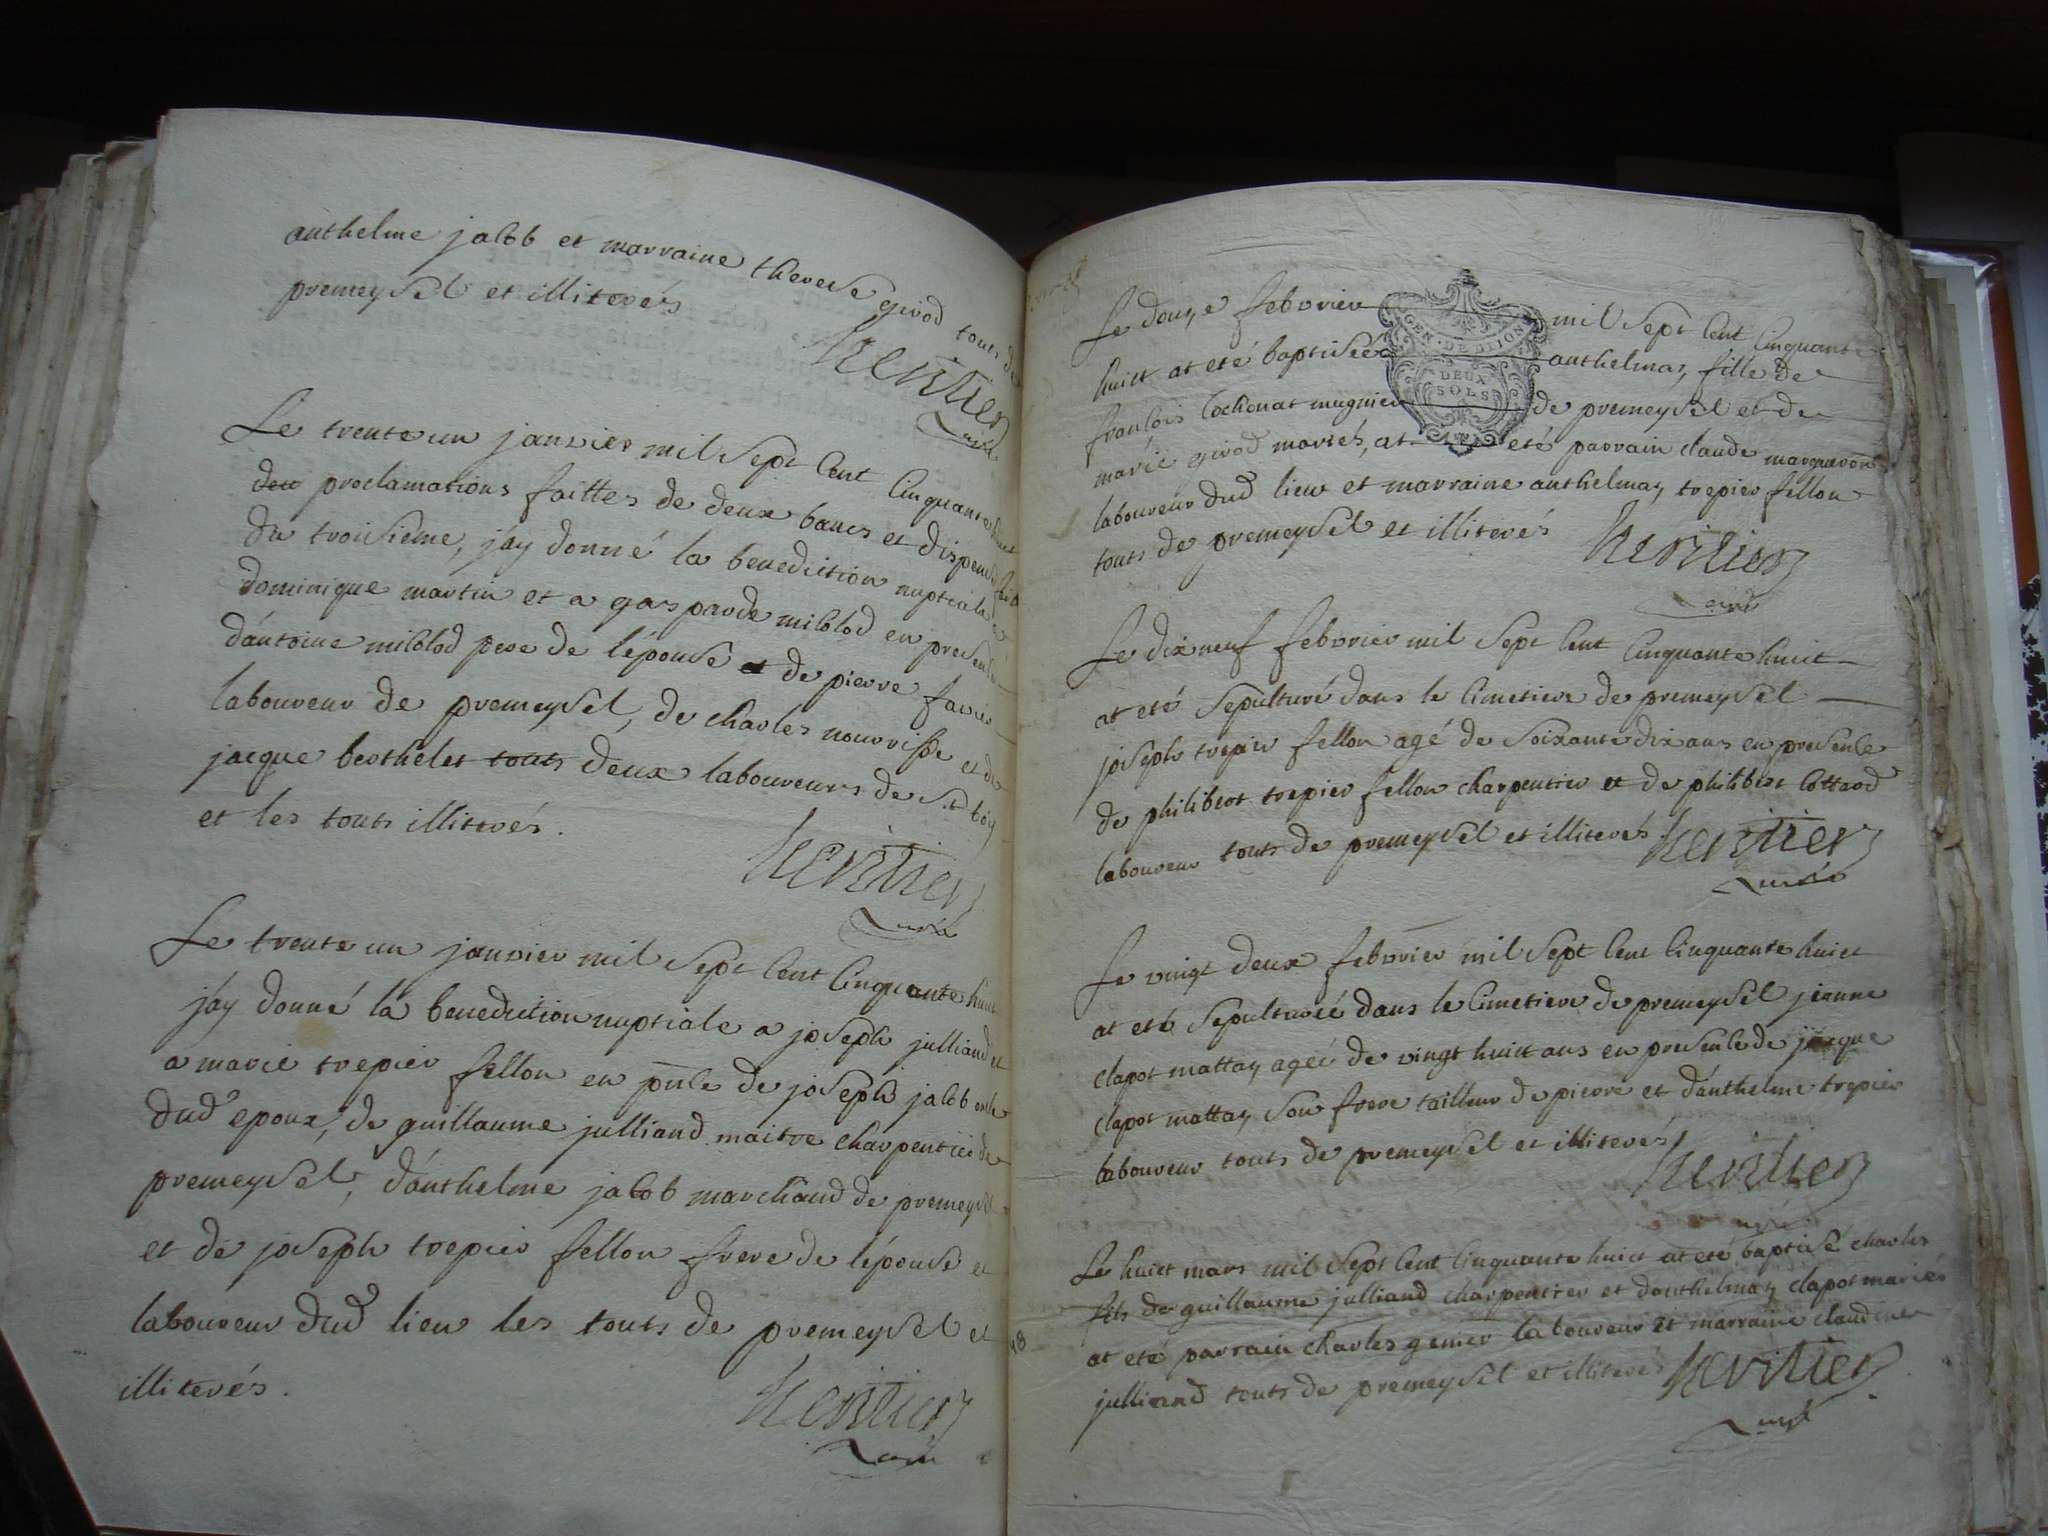 anthelme jacob et marraine therese girod touts de
premeysel et illiterés
heritier
curé
Le trente un janvier mil sept cent cinquante huict
proclamations faittes de deux bancs et dispense
du troisieme, j'ay donné la benediction nuptiale a
dominique martin et a gasparde miblod en presence
d'antoine miblod pere de l'épouse et de pierre favier
laboureur de premeysel, de charles nourrisse et de
jacque berthelet touts deux laboureurs de st boy
et les touts illiterés.
heritier
curé
Le trente un janvier mil sept cent cinquante huict
j'ay donné la benediction nuptiale a joseph julliand et
a marie trepier fellon en pnce de joseph jacob oncle
dud epoux, de guillaume julliand maitre charpentier de
premeysel, d'anthelme jacob marchand de premeysel
et de joseph trepier fellon frere de l'épouse et
laboureur dud lieu les touts de premeysel et
illiterés.
heritier
curé
Le douze febvrier mil sept cent cinquante
huict at eté baptisée anthelmaz fille de
francois cochonat mugnier de premeysel et de
marie girod mariés, at eté parrain claude marqueron
laboureur dud lieu et marraine anthelmaz trepier fellon
touts de premeysel et illiterés
heritier
curé
GEN · DE DIJON
DEUX
SOLS
Le dix neuf febvrier mil sept cent cinquante huict
at eté sepulturé dans le cimetiere de premeysel
joseph trepier fellon agé de soixante dix ans en presence
de philibert trepier fellon charpentier et de philibert cottard
laboureur touts de premeysel et illiterés
heritier
curé
Le vingt deux febvrier mil sept cent cinquante huict
at eté sepulturée dans le cimetiere de premeysel jeanne
clapot mattaz agée de vingt huict ans en presence de jacque
clapot mattaz son frere tailleur de pierre et d'anthelme trepier
laboureur touts de premeysel et illiterés
heritier
curé
Le huict mars mil sept cent cinquante huict at eté baptisé charles
fils de guillaume julliand charpentier et d'anthelmaz clapot mariés
at eté parrain charles genier laboureur et marraine claudine
julliand touts de premeysel et illiterés
heritier
curé